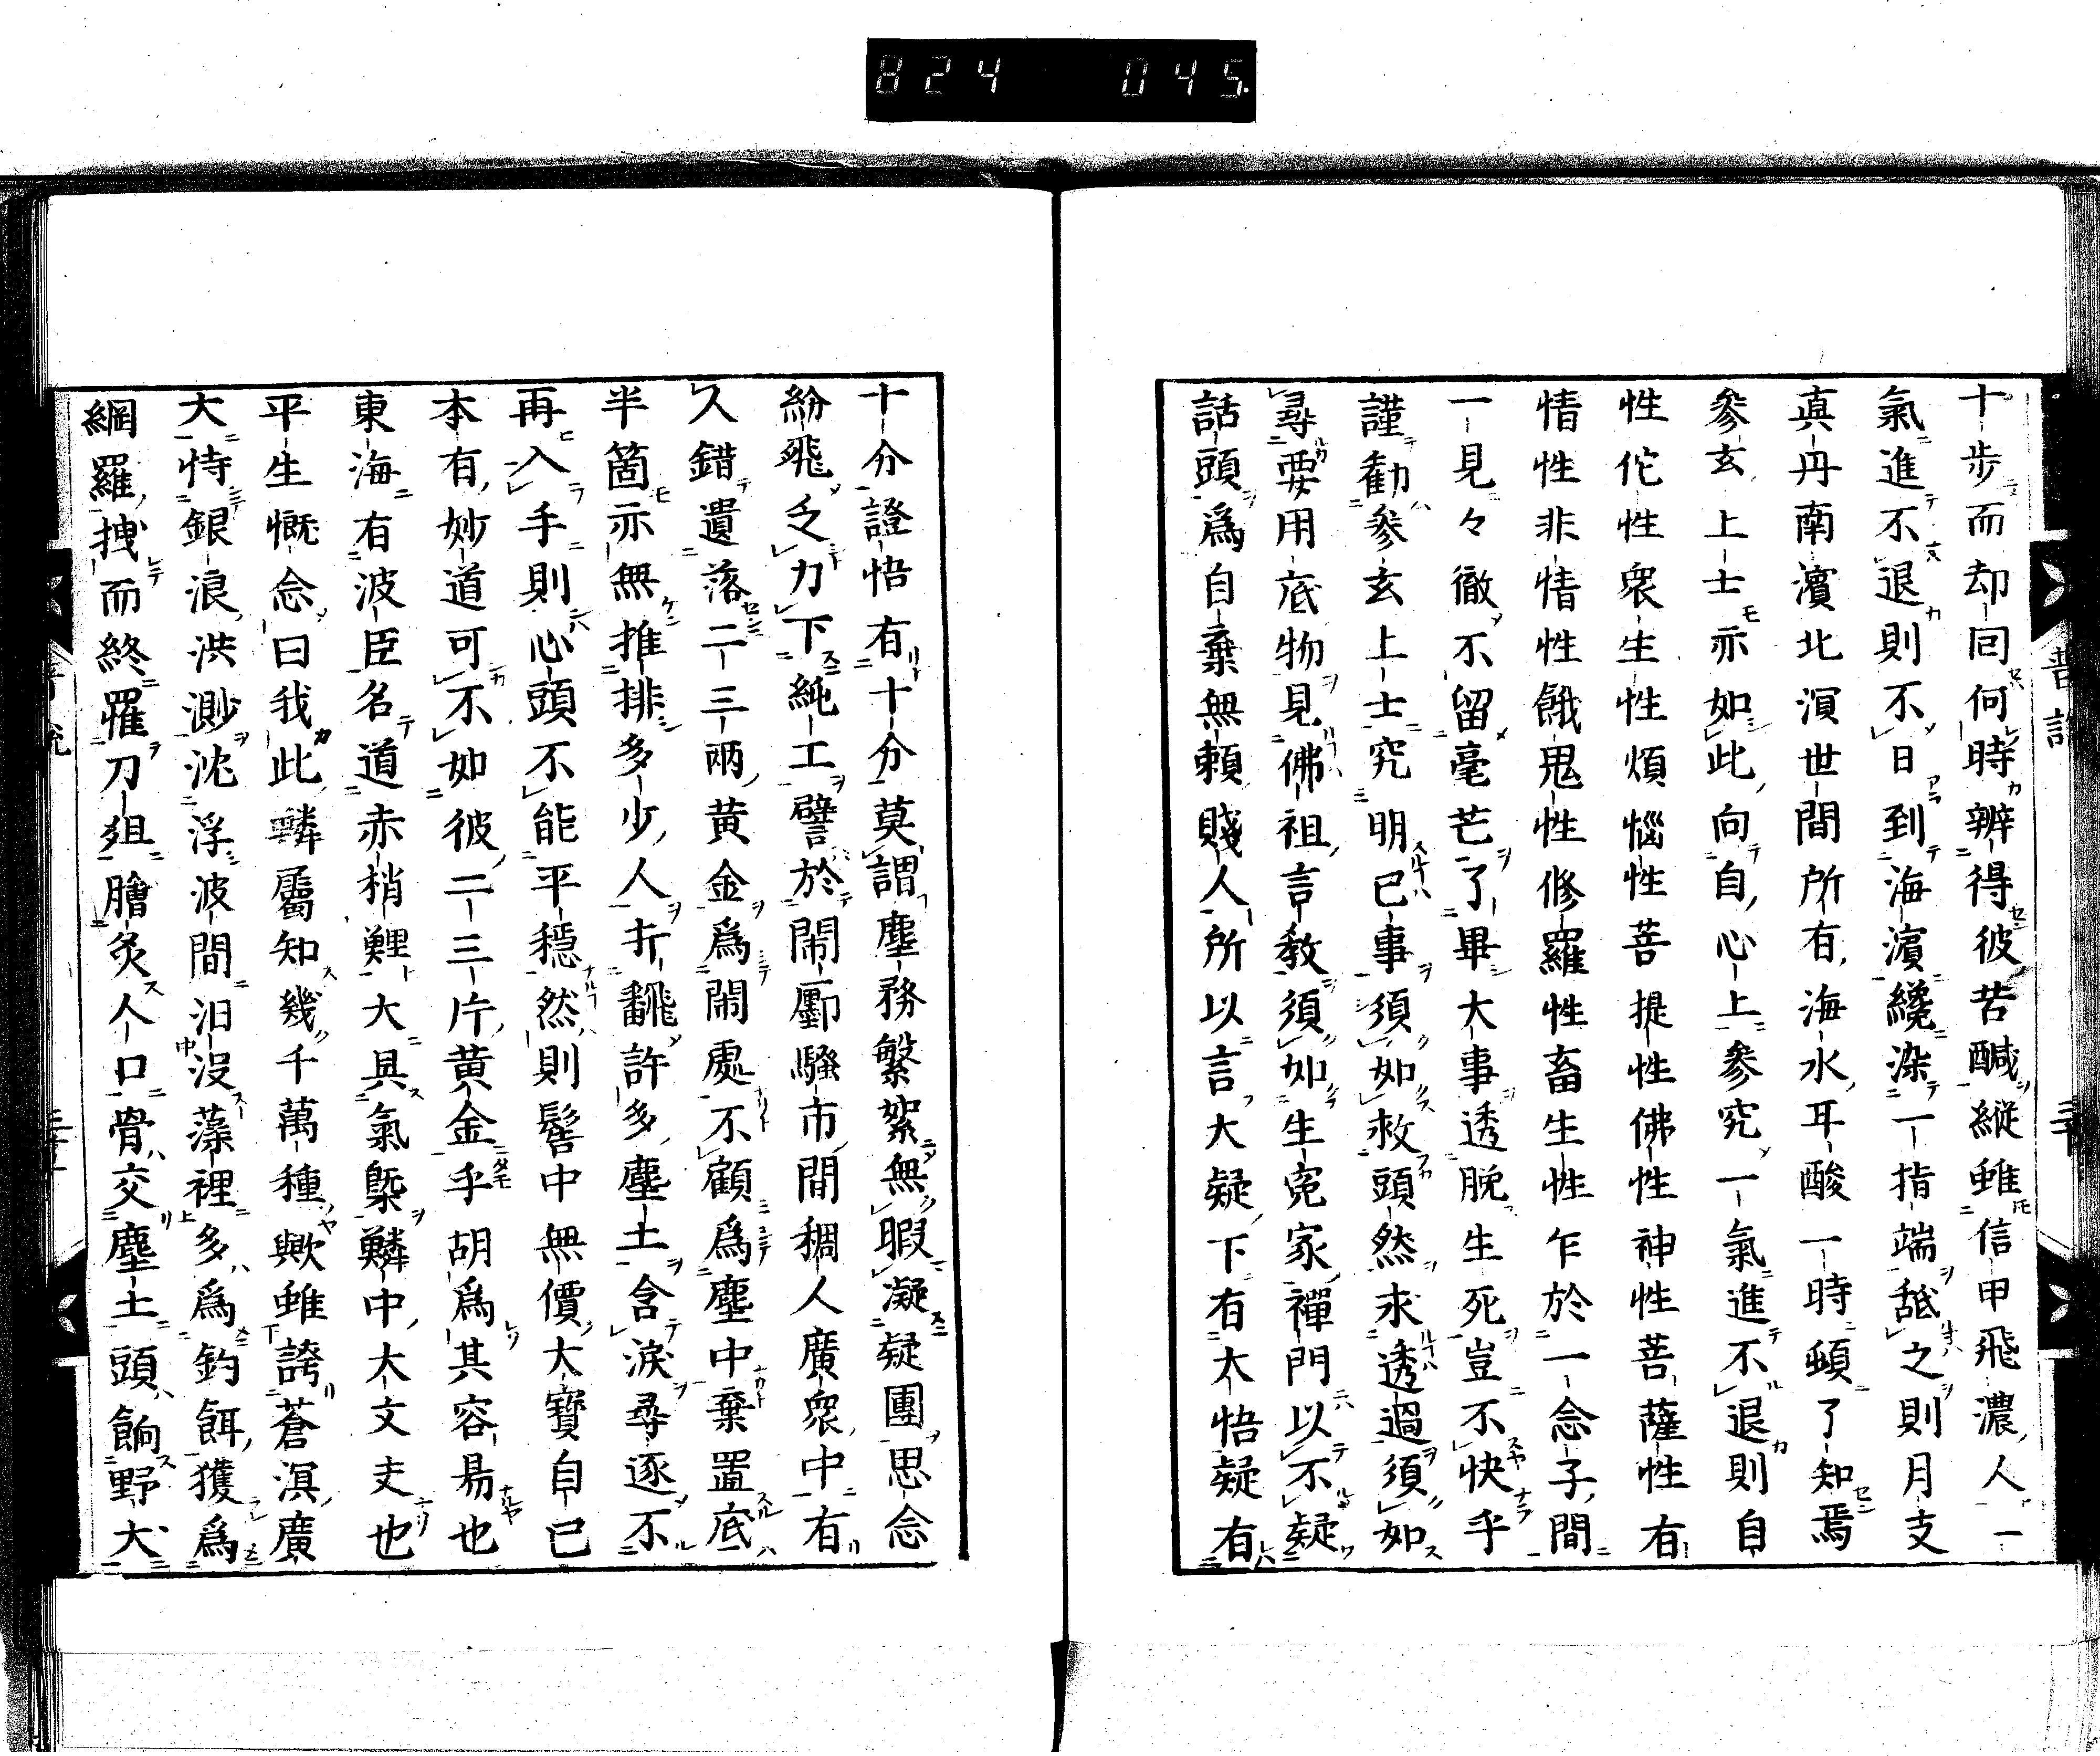 824 045.
十步而却回何時辨得彼苦醎縱雖信甲飛濃人一
氣進不退則不日到海濱纔染一指端舐之則月支
真丹南濱北溟世間所有海水耳酸一時頓了知焉
參玄上士亦如此向自心上參究一氣進不退則自
性佗性衆生性煩惱性菩提性佛性神性菩薩性有
情性非情性餓鬼性修羅性畜生性乍於一念子間
一見々徹不留毫芒了畢大事透脫生死豈不快乎
謹勸參玄上士究明己事須如救頭然求透過須如
尋要用底物見佛祖言教須如生寃家禪門以不疑
話頭爲自棄無賴賤人所以言大疑下有大悟疑有
十分證悟有十分莫謂塵務繁絮無暇凝疑團思念
紛飛乏力下純工譬於鬧鄽騷市間稠人廣衆中有
人錯遺落二三兩黃金爲鬧處不顧爲塵中棄置底
半箇亦無推排多少人衦翻許多塵土含淚尋逐不
再入手則心頭不能平穩然則髻中無價大寶自己
本有妙道可不如彼二三片黃金乎胡爲其容易也
東海有波臣名道赤梢鯉大具氣槩鱗中大丈夫也
平生慨念曰我此鱗屬知幾千萬種歟雖誇蒼溟廣
大恃銀浪洪渺沈浮波間汨沒藻裡多爲釣餌獲爲
網羅拽而終罹刀俎膾炙人口骨交塵土頭餉野犬